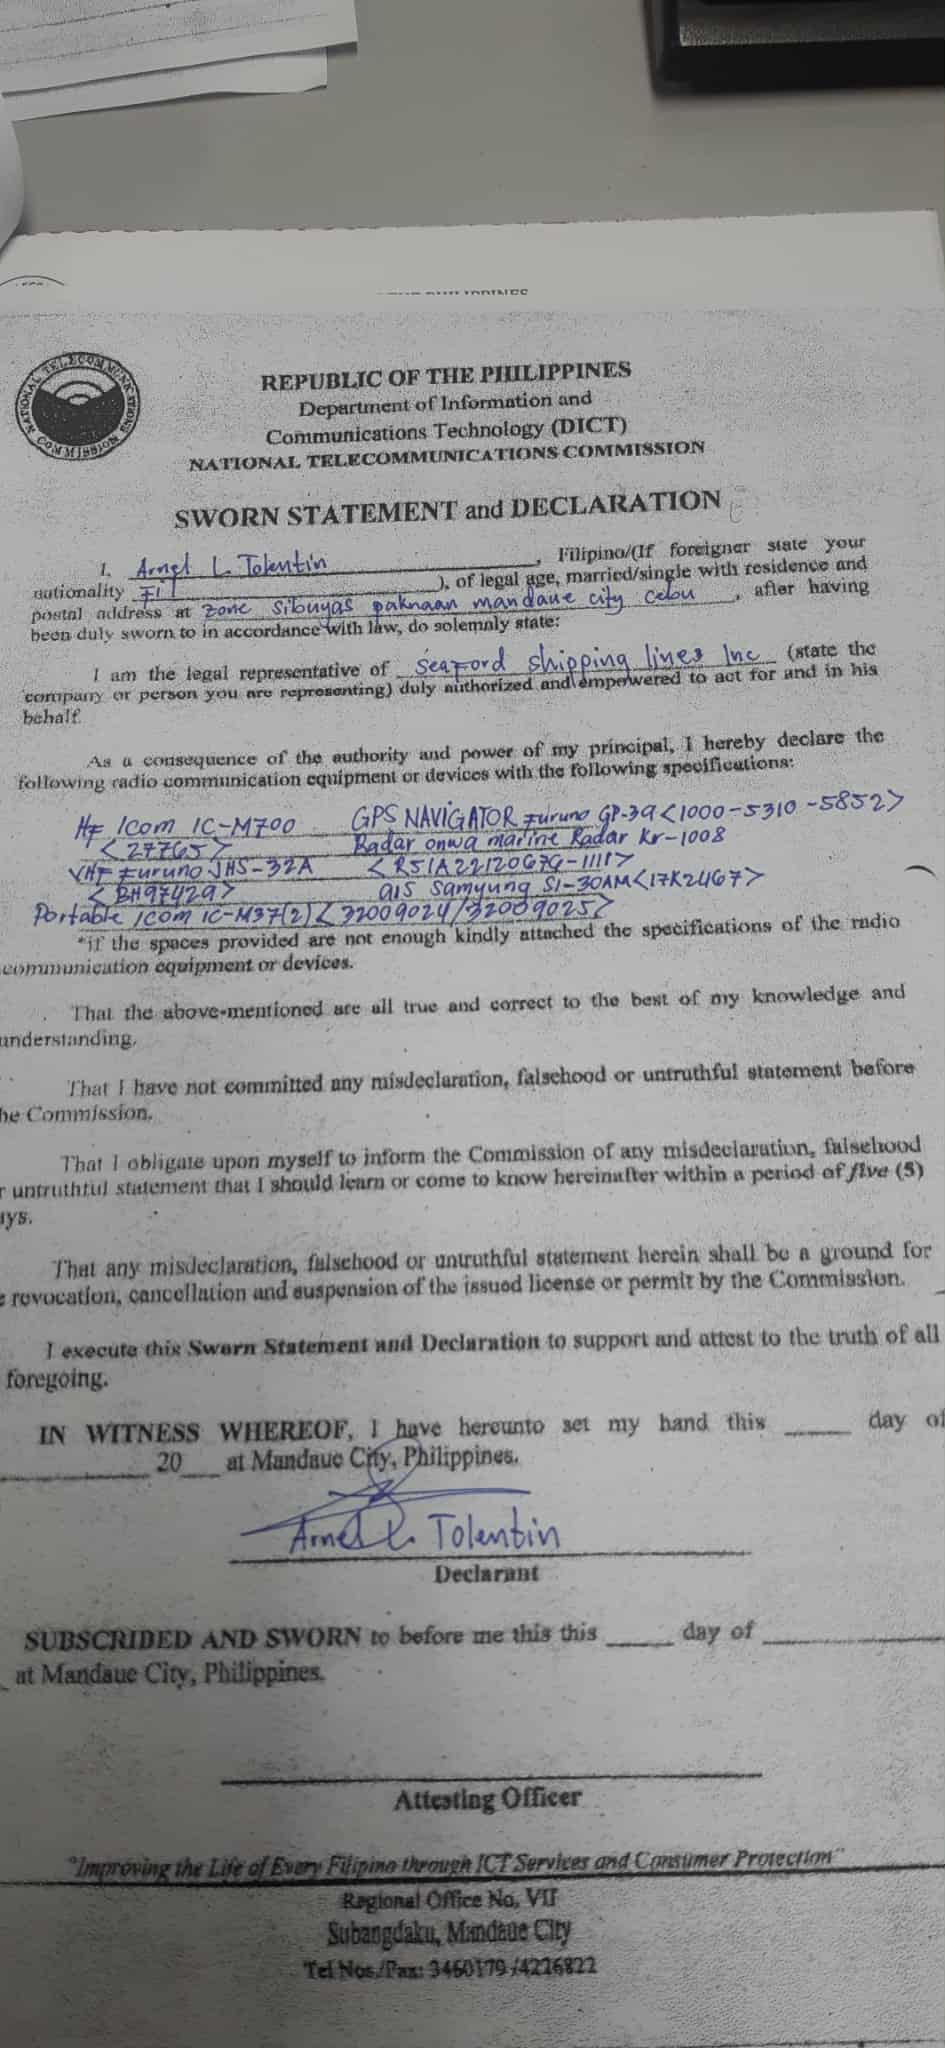 THE PHILIPPINES
NATIONAL TELECOMMUNICATIONS COMMISSION
REPUBLIC OF THE PHILIPPINES
Department of Information and
Communications Technology (DICT)
NATIONAL TELECOMMUNICATIONS COMMISSION
SWORN STATEMENT and DECLARATION
I, Arnel L. Tolentin, Filipino/(If foreigner state your
nationality Fil), of legal age, married/single with residence and
postal address at zone sibuyas paknaan mandaue city cebu, after having
been duly sworn to in accordance with law, do solemnly state:
I am the legal representative of seaford shipping lines Inc (state the
company or person you are representing) duly authorized and empowered to act for and in his
behalf.
As a consequence of the authority and power of my principal, I hereby declare the
following radio communication equipment or devices with the following specifications:
HF Icom IC-M700 GPS NAVIGATOR Furuno GP-39 <1000-5310-5852>
<27765> Radar onwa marine Radar Kr-1008
VHF Furuno JHS-32A <R51A2212067G-1111>
<BH97429> ais Samyung SI-30AM <17K2467>
Portable Icom IC-M37(2) <32009024/32009025>
*if the spaces provided are not enough kindly attached the specifications of the radio
communication equipment or devices.
That the above-mentioned are all true and correct to the best of my knowledge and
understanding.
That I have not committed any misdeclaration, falsehood or untruthful statement before
he Commission.
That I obligate upon myself to inform the Commission of any misdeclaration, falsehood
r untruthful statement that I should learn or come to know hereinafter within a period of five (5)
ays.
That any misdeclaration, falsehood or untruthful statement herein shall be a ground for
e revocation, cancellation and suspension of the issued license or permit by the Commission.
I execute this Sworn Statement and Declaration to support and attest to the truth of all
foregoing.
IN WITNESS WHEREOF, I have hereunto set my hand this ____ day of
____ 20__ at Mandaue City, Philippines.
Arnel L. Tolentin
Declarant
SUBSCRIBED AND SWORN to before me this this ____ day of ____
at Mandaue City, Philippines.
Attesting Officer
"Improving the Life of Every Filipino through ICT Services and Consumer Protection"
Regional Office No. VII
Subangdaku, Mandaue City
Tel Nos./Fax: 3460179/4226822